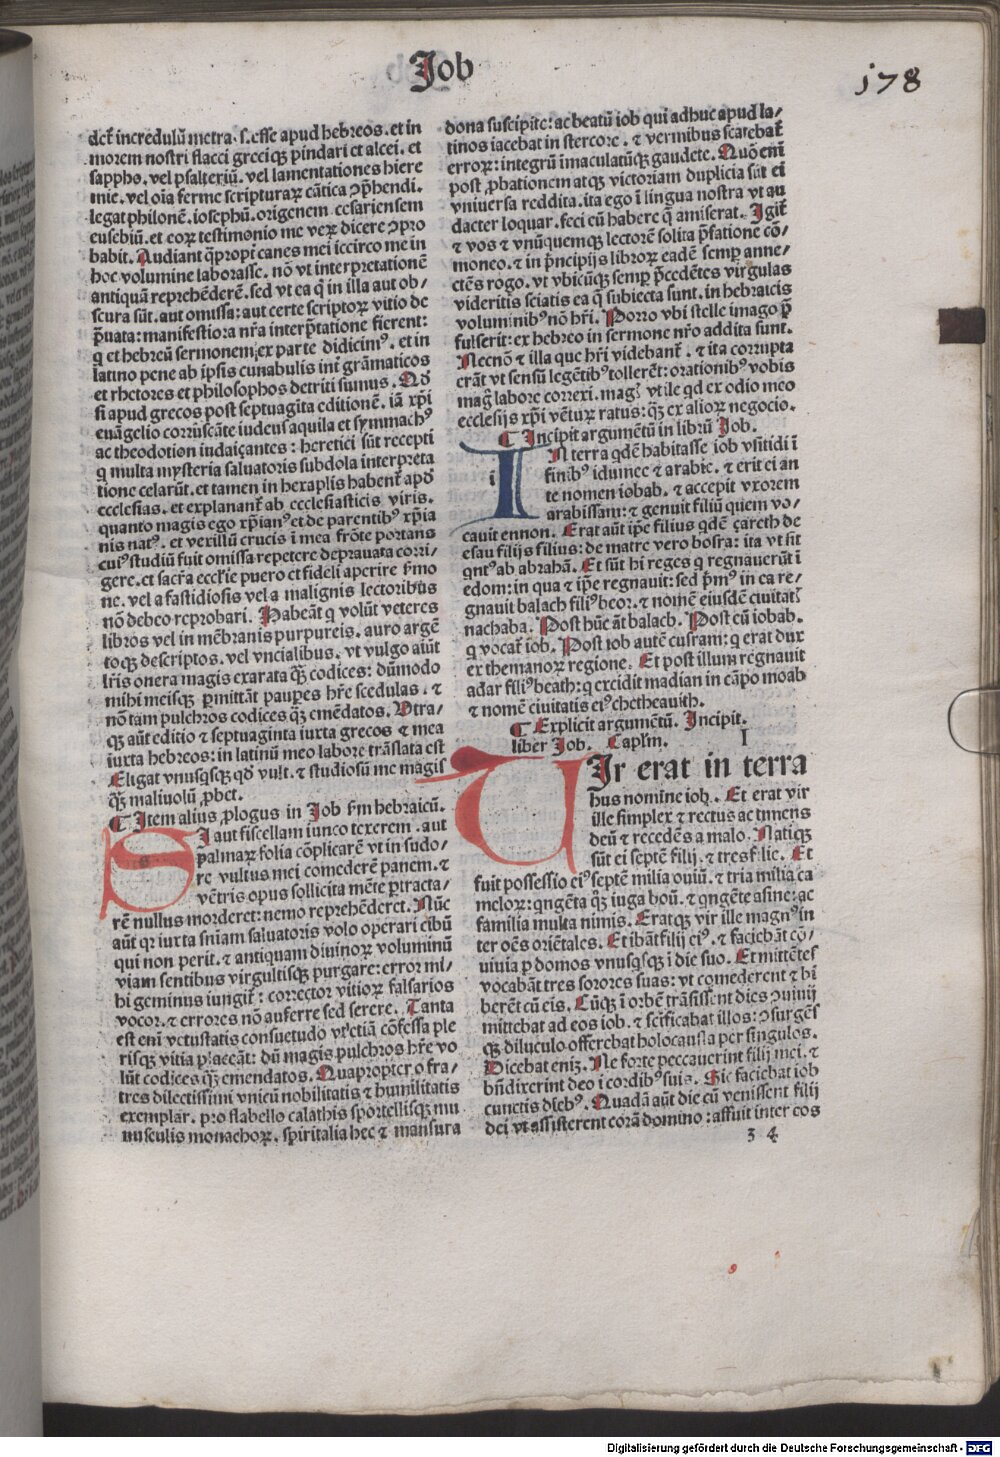 Job
178
dct̄ incredulū metra.s.esse apud hebreos.et in
morem nostri flacci greciqꝫ pindari et alcei.et
sappho.vel psalteriū.vel lamentationes hiere
mie.vel oīa ferme scripturaꝝ cātica ꝯp̄hendi.
legat philonē.iosephū.origenem cesariensem
eusebiū.et eoꝝ testimonio me veꝝ dicere ꝯpro
babit. Audiant q̄propt̄ canes mei iccirco me in
hoc volumine laborasse.nō vt interpretationē
antiquā reprehēderē.sed vt ea q̄ in illa aut ob/
scura sūt.aut omissa:aut certe scriptoꝝ vitio de
p̄uata:manifestiora nr̄a interp̄tatione fierent:
q̇ et hebreū sermonem ex parte didicimꝰ.et in
latino pene ab ipsis cunabulis int̄ grāmaticos
et rhetores et philosophos detriti sumus. Qđ
si apud grecos post septuagīta editionē.iā xp̄i
euāgelio corruscāte iudeus aquila et symmachꝰ
ac theodotion iudaiçantes:heretici sūt recepti
q̇ multa mysteria saluatoris subdola interpreta
tione celarūt.et tamen in hexaplis habent̄ apđ
ecclesias.et explanant̄ ab ecclesiasticis viris.
quanto magis ego xp̄ianꝰ et de parentibꝰ xp̄ia
nis natꝰ.et vexillū crucis ī mea frōte portans
cuiꝰ studiū fuit omissa repetere deprauata corri/
gere.et sacr̄a eccl̄ie puero et fideli aperire s̄mo
ne.vel a fastidiosis vel a malignis lectoribus
nō debeo reprobari. Habeāt q̇ volūt veteres
libros vel in mēbranis purpureis.auro argē
toqꝫ descriptos.vel vncialibus.vt vulgo aiūt
lr̄is onera magis exarata qꝫ̄ codices:dūmodo
mihi meisqꝫ ꝑmittāt paupes hr̄e scedulas.⁊
nō tam pulchros codices qꝫ̄ emēdatos. Vtra/
qꝫ aūt editio ⁊ septuaginta iuxta grecos ⁊ mea
iuxta hebreos:in latinū meo labore trāslata est
Eligat vnusqꝫsqꝫ qđ vult.⁊ studiosū me magis
qꝫ̄ maliuolū ꝓbet.
¶ Item alius ꝓlogus in Job s̄m hebraicū.
SI aut fiscellam iunco texerem.aut
palmaꝝ folia cōplicarē vt in sudo/
re vultus mei comederē panem.⁊
vētris opus sollicita mēte ꝑtracta/
rē nullus morderet:nemo reprehēderet. Nūc
aūt qꝛ iuxta sniam saluatoris volo operari cibū
qui non perit.⁊ antiquam diuinoꝝ voluminū
viam sentibus virgultisqꝫ purgare:error mi/
hi geminus iungit̄:corrector vitioꝝ falsarios
vocor.⁊ errores nō auferre sed serere. Tanta
est enī vetustatis consuetudo vt etiā cōfessa ple
risqꝫ vitia placeāt:dū magis pulchros hr̄e vo
lūt codices qꝫ̄ emendatos. Quapropter o fra/
tres dilectissimi vnicū nobilitatis ⁊ humilitatis
exemplar.pro flabello calathis sportellisqꝫ mu
nusculis monachoꝝ.spiritalia hec ⁊ mansura
dona suscipite:ac beatū iob qui adhuc apud la/
tinos iacebat in stercore.⁊ vermibus scatebat̄
erroꝝ:integrū īmaculatūqꝫ gaudete. Quō enī
post ꝓbationem atqꝫ victoriam duplicia sūt ei
vniuersa reddita.ita ego ī lingua nostra vt au
dacter loquar.feci eū habere q̄ amiserat. Igit̄
⁊ vos ⁊ vnūquemqꝫ lectorē solita p̄fatione cō/
moneo.⁊ in p̄ncipijs libroꝝ eadē semꝑ anne/
ctēs rogo.vt vbicūqꝫ semꝑ p̄cedētes virgulas
videritis sciatis ea q̄ subiecta sunt.in hebraicis
voluminibꝰ nō hr̄i. Porro vbi stelle imago p̄
fulserit:ex hebreo in sermone nr̄o addita sunt.
Necnō ⁊ illa que hr̄i videbant̄.⁊ ita corrupta
erāt vt sensū legētibꝰ tollerēt:orationibꝰ vobis
maḡ labore correxi.magꝭ vtile qđ ex odio meo
ecclesijs xp̄i vētuꝝ ratus:qꝫ̄ ex alioꝝ negocio.
¶ Incipit argumētū in librū Job.
IN terra qdē habitasse iob vsitidi ī
finibꝰ idumee ⁊ arabie.⁊ erit ei an
te nomen iobab.⁊ accepit vxorem
arabissam:⁊ genuit filiū quem vo/
cauit ennon. Erat aūt ip̄e filius qdē çareth de
esau filijs filius:de matre vero bosra:ita vt sit
qntꝰ ab abrahā. Et sūt hi reges q̇ regnauerūt ī
edom:in qua ⁊ ip̄e regnauit:sed p̄mꝰ in ea re/
gnauit balach filiꝰ beor.⁊ nomē eiusdē ciuitatꝭ
nachaba. Post hūc āt balach. Post eū iobab.
q̇ vocat̄ iob. Post iob autē cusram:q̇ erat dux
ex themanoꝝ regione. Et post illum regnauit
adar filiꝰ beath:q̇ excidit madian in cāpo moab
⁊ nomē ciuitatis eiꝰ chetheauith.
¶ Explicit argumētū. Incipit.
liber Job. Capl̄m. I
VIr erat in terra
hus nomine iob. Et erat vir
ille simplex ⁊ rectus ac timens
deū ⁊ recedēs a malo. Natiqꝫ
sūt ei septē filij.⁊ tres filie. Et
fuit possessio eiꝰ septē milia ouiū.⁊ tria milia ca
meloꝝ:qngēta qꝫ iuga boū.⁊ qngēte asine:ac
familia multa nimis. Eratqꝫ vir ille magnꝰ in
ter oēs oriētales. Et ibāt filij eiꝰ.⁊ faciebāt cō/
uiuia ꝑ domos vnusqsqꝫ ī die suo. Et mittētes
vocabāt tres sorores suas:vt comederent ⁊ bi
berēt cū eis. Cūqꝫ ī orbē trāsissent dies ꝯuiuij
mittebat ad eos iob.⁊ scificabat illos:ꝯsurgēs
qꝫ diluculo offerebat holocausta per singulos.
Dicebat eniꝫ. Ne forte peccauerint filij mei.⁊
bn̄dixerint deo ī cordibꝰ suis. Sic faciebat iob
cunctis diebꝰ. Quadā aūt die cū venissent filij
dei vt assisterent corā domino:affuit inter eos
3 4
Digitalisierung gefördert durch die Deutsche Forschungsgemeinschaft - DFG